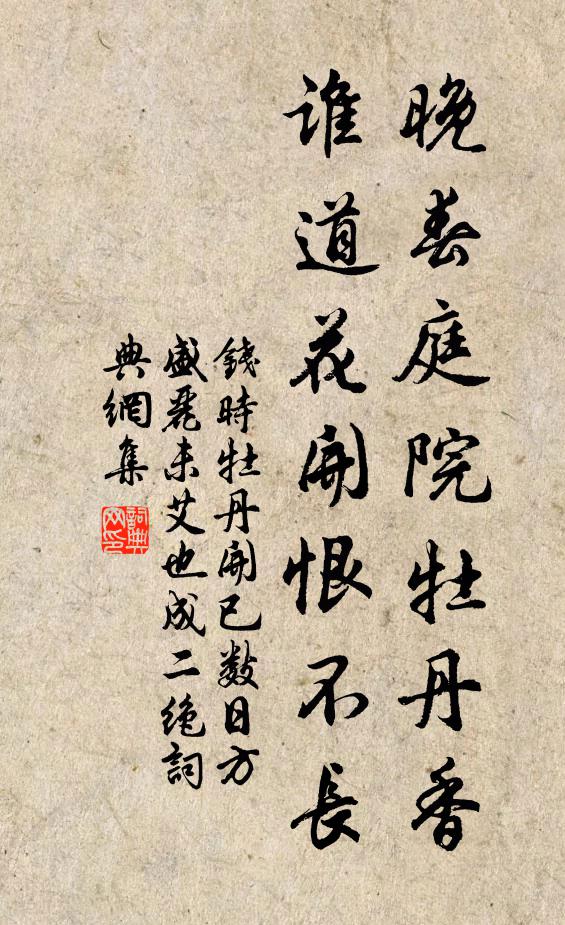 晚春庭院牡丹香
誰道花開恨不長
錢時牡丹開已數日方
盛麗未艾也成二絶詞
典網集
詞典
网印